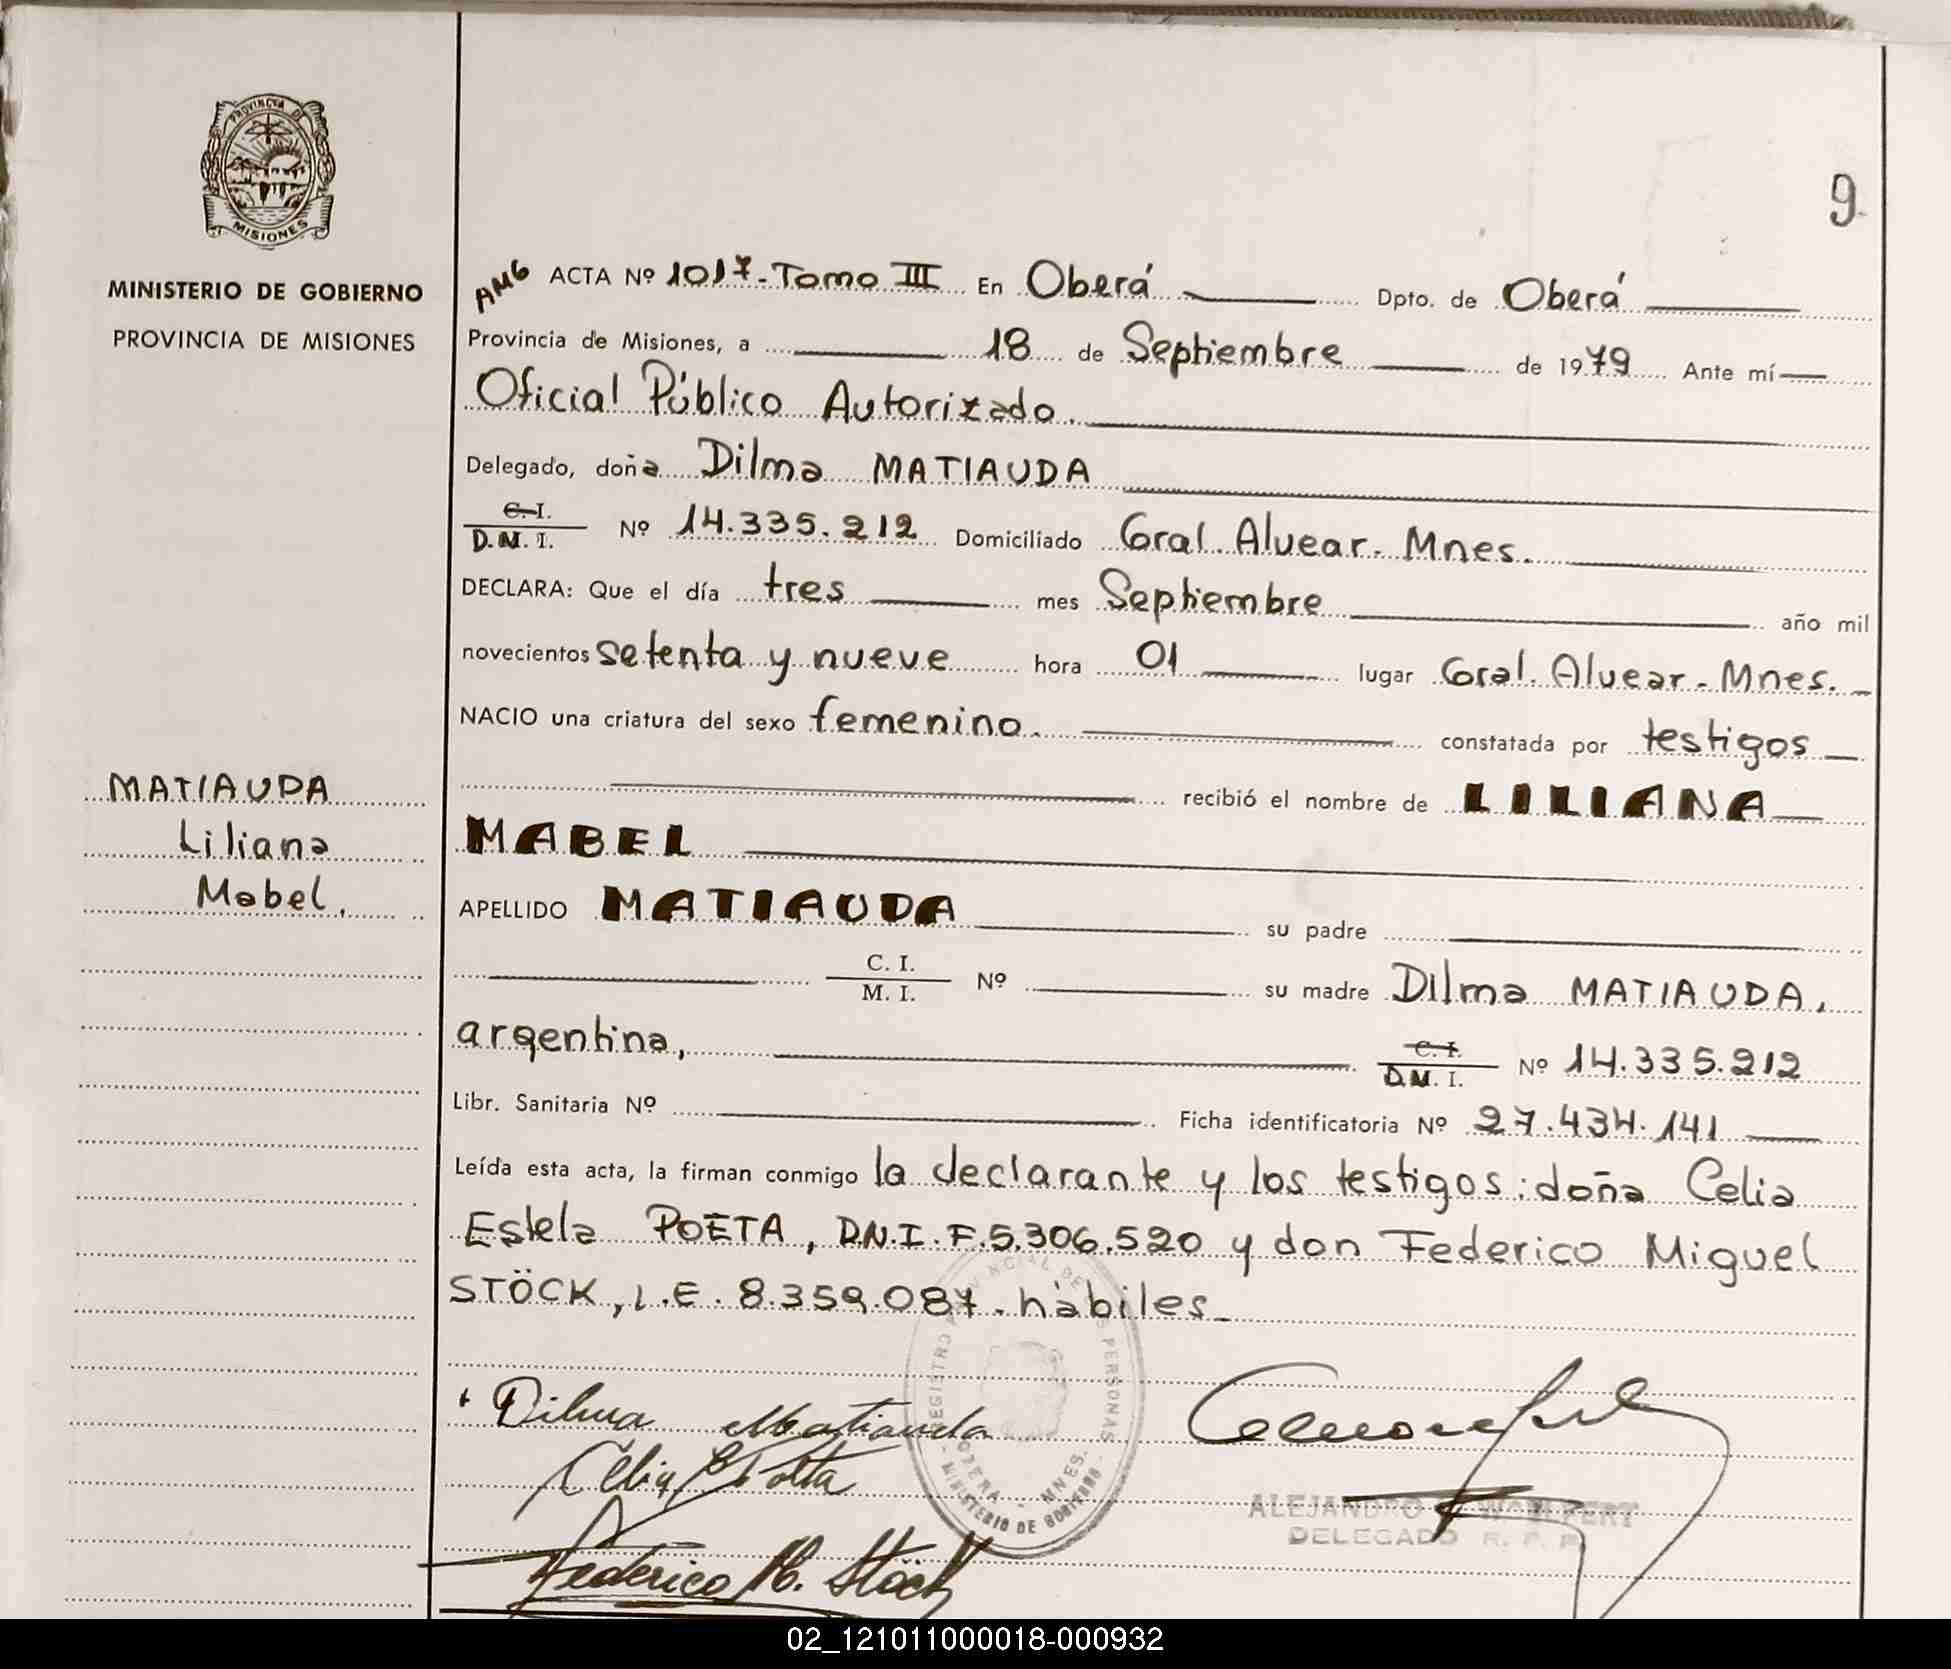 PROVINCIA DE
MISIONES
MINISTERIO DE GOBIERNO
PROVINCIA DE MISIONES
MATIAUDA
Liliana
Mabel.
9
AMG ACTA Nº 1017-Tomo III En Oberá Dpto. de Oberá
Provincia de Misiones, a 18 de Septiembre de 1979 Ante mí
Oficial Público Autorizado.
Delegado, doña Dilma MATIAUDA
C. I.
D.M. I. Nº 14.335.212 Domiciliado Gral. Alvear - Mnes.
DECLARA: Que el día tres mes Septiembre año mil
novecientos setenta y nueve hora 01 lugar Gral. Alvear - Mnes.
NACIO una criatura del sexo femenino. constatada por testigos
recibió el nombre de LILIANA
MABEL
APELLIDO MATIAUDA su padre
C. I.
M. I. Nº su madre Dilma MATIAUDA,
argentina, C. I.
D.M. I. Nº 14.335.212
Libr. Sanitaria Nº Ficha identificatoria Nº 27.434.141
Leída esta acta, la firman conmigo la declarante y los testigos: doña Celia
Estela POETA, D.N.I. F. 5.306.520 y don Federico Miguel
STÖCK, L.E. 8.359.087. hábiles.
REGISTRO PROVINCIAL DE LAS PERSONAS
OBERA - MNES.
MINISTERIO DE GOBIERNO
Dilma Matiauda
Celia E Poeta
Federico M. Stöck
ALEJANDRO WOLFERT
DELEGADO R. P. P.
02_121011000018-000932